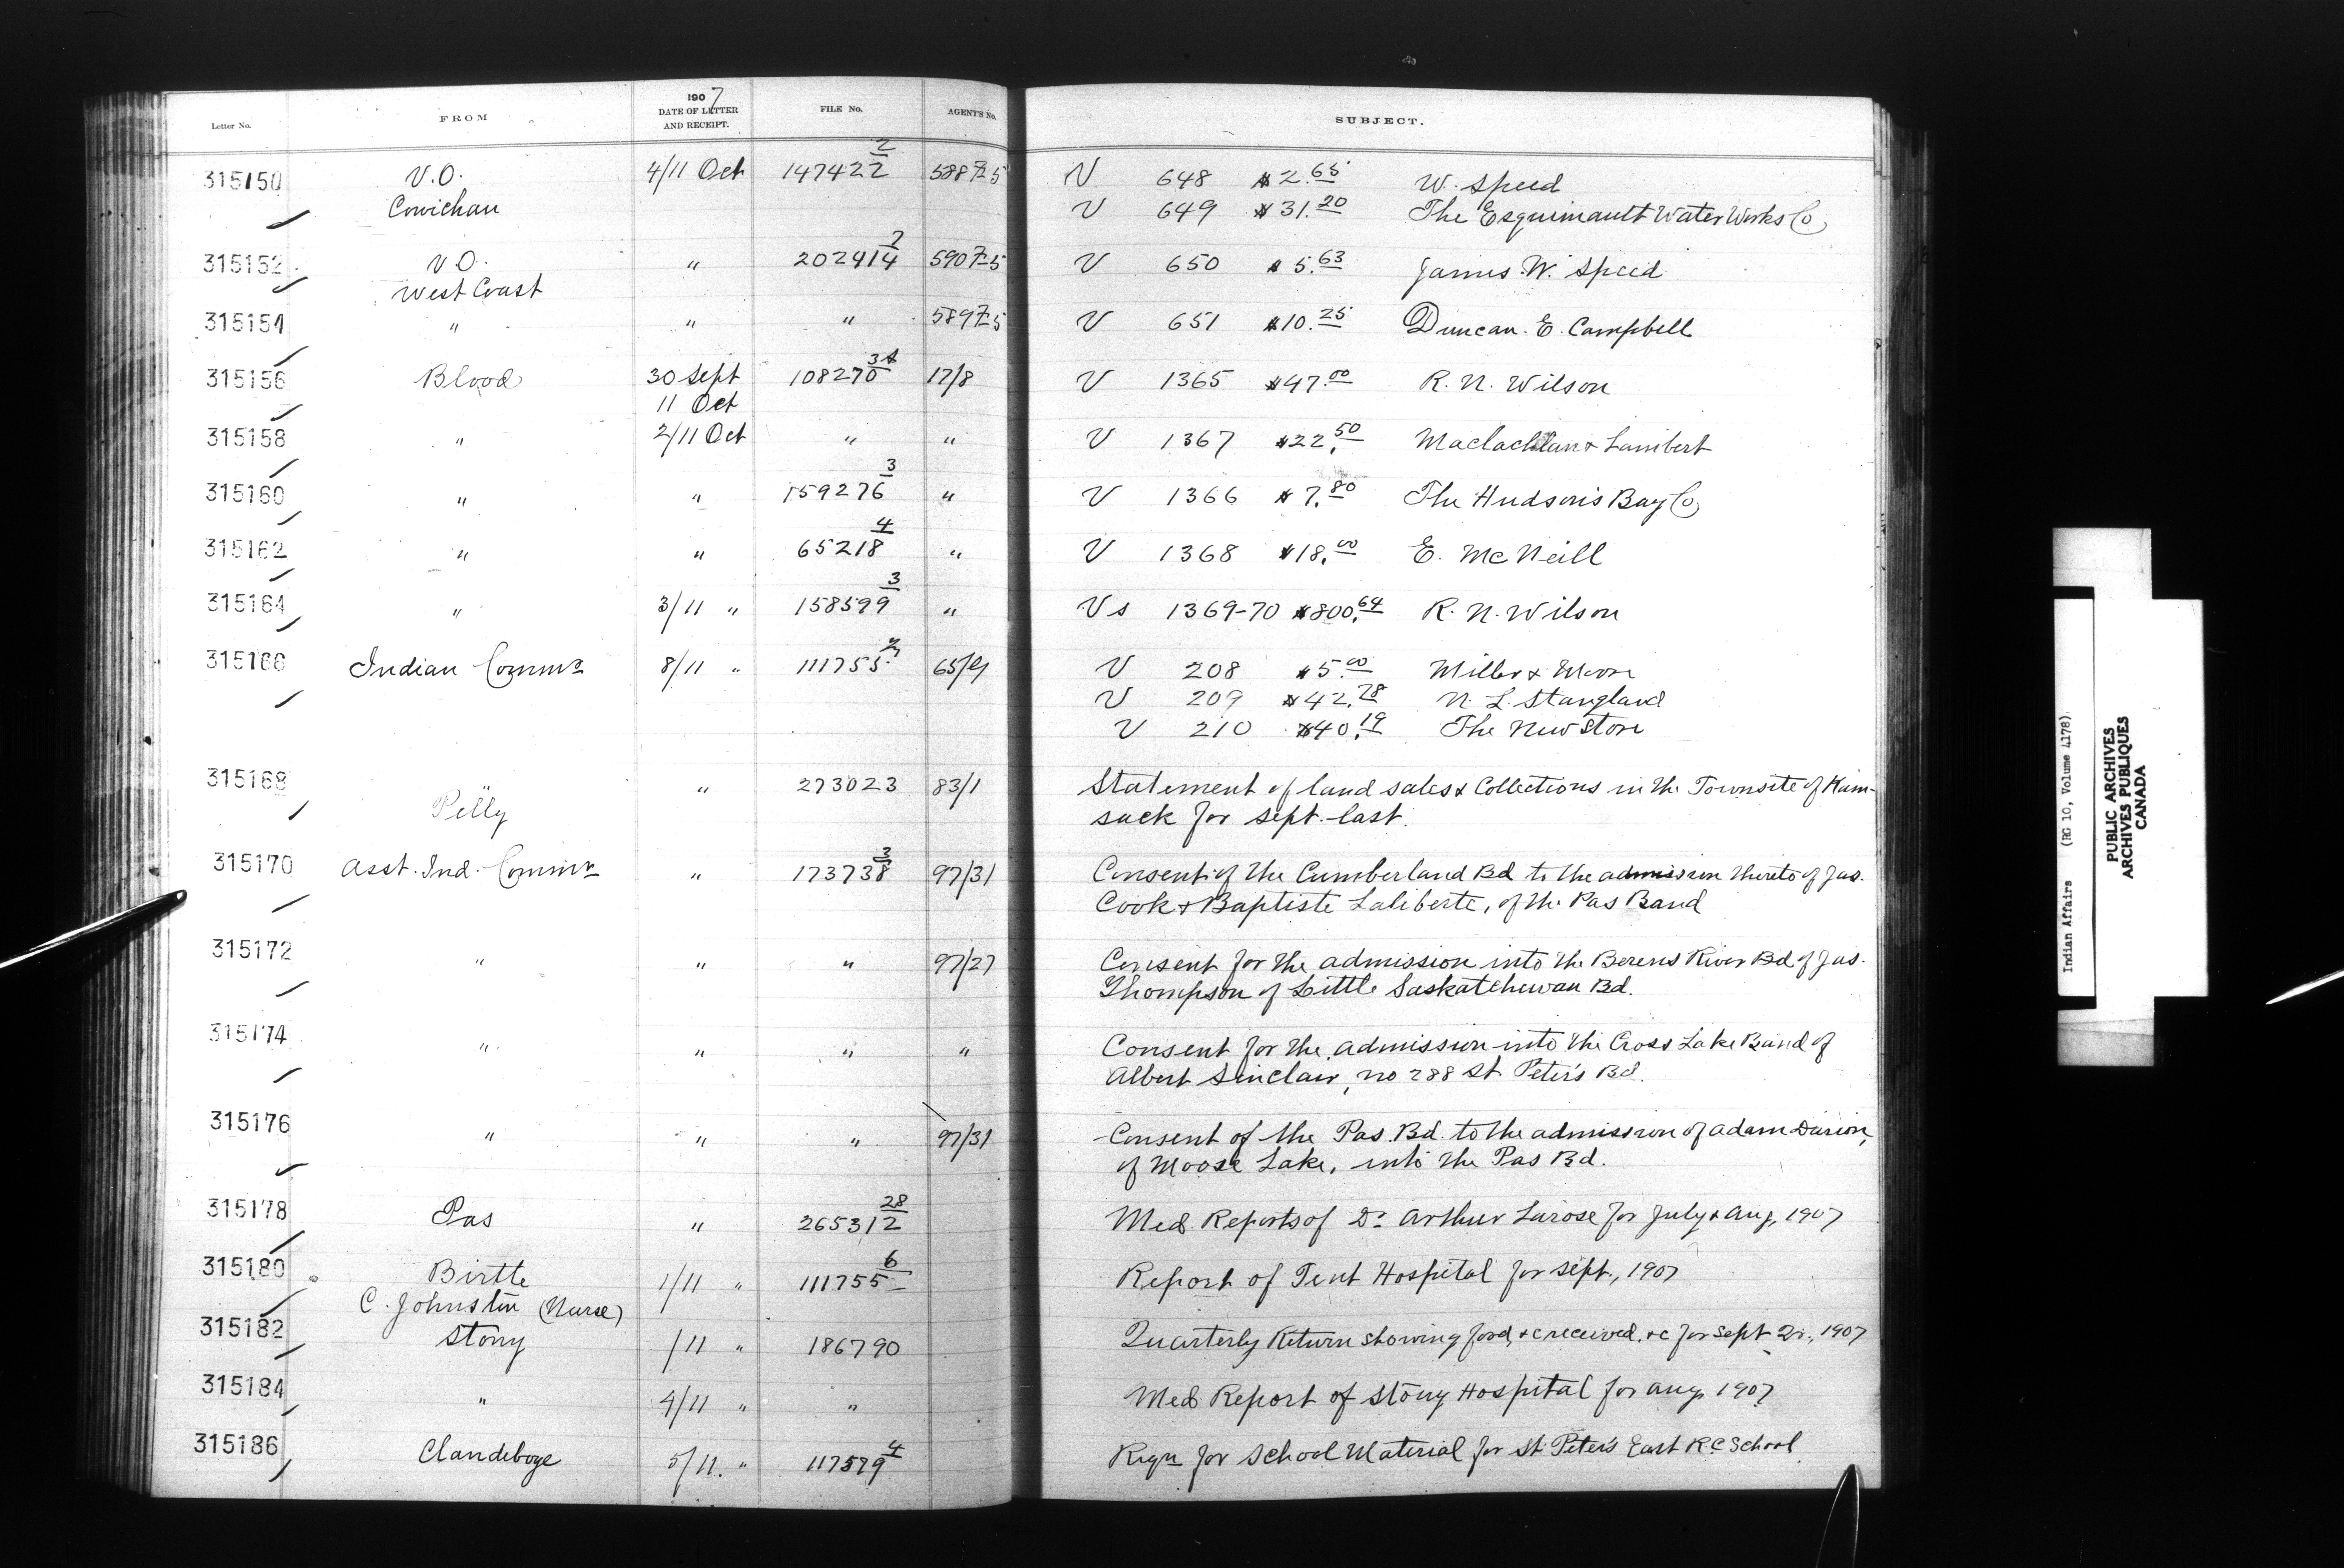 Letter No. FROM 1907 DATE OF LETTER AND RECEIPT. FILE No. AGENT'S No. SUBJECT.
315150 V.O. 4/11 Oct 147422 2 V 648 $2.65 W. Speed
Cowichan V 649 $31.20 The Esquimault Water Works Co
315152 V.O. " 202414 V 650 $5.63 James W. Speed
West Coast
315154 " " " V 651 $10.25 Duncan E. Campbell
315156 Blood 30 Sept 108270 17/8 V 1365 $47.00 R. N. Wilson
11 Oct
315158 " 2/11 Oct " " V 1367 $22.50 Maclachlan & Lambert
315160 " " 159276 3 " V 1366 $7.80 The Hudson's Bay Co
315162 " " 65218 4 " V 1368 $18.00 E. McNeill
315164 " 3/11 " 158599 3 " Vs 1369-70 $800.64 R. N. Wilson
315166 Indian Commr 8/11 " 111755 65/9 V 208 $5.00 Miller & Moore
V 209 $42.78 N. L. Stangland
V 210 $40.19 The New Store
315168 Pelly " 273023 83/1 Statement of land sales & Collections in the Townsite of Kam-
sack for Sept. last.
315170 Asst. Ind. Commr " 173738 3 97/31 Consent of the Cumberland Bd to the admission thereto of Jas.
Cook & Baptiste Laliberte, of the Pas Band
315172 " " " 97/27 Consent for the admission into the Berens River Bd of Jas.
Thompson of Little Saskatchewan Bd.
315174 " " " " Consent for the admission into the Cross Lake Band of
Albert Sinclair, no 288 St. Peter's Bd.
315176 " " " 97/31 Consent of the Pas Bd. to the admission of Adam
of Moose Lake, into the Pas Bd.
315178 Pas " 265312 28 Med. Reports of Dr Arthur Larose for July & Aug, 1907
315180 Birtle 1/11 " 111755 6 Report of Tent Hospital for Sept., 1907
C. Johnston (Nurse)
315182 Stony /11 " 186790 Quarterly Return showing food, &c received, &c for Sept Qr., 1907
315184 " 4/11 " " Med Report of Stony Hospital for Aug. 1907
315186 Clandeboye 5/11. " 117579 4 Reqn for School Material for St. Peter's East R.C School
Indian Affairs (RG 10, Volume 4178)
PUBLIC ARCHIVES
ARCHIVES PUBLIQUES
CANADA